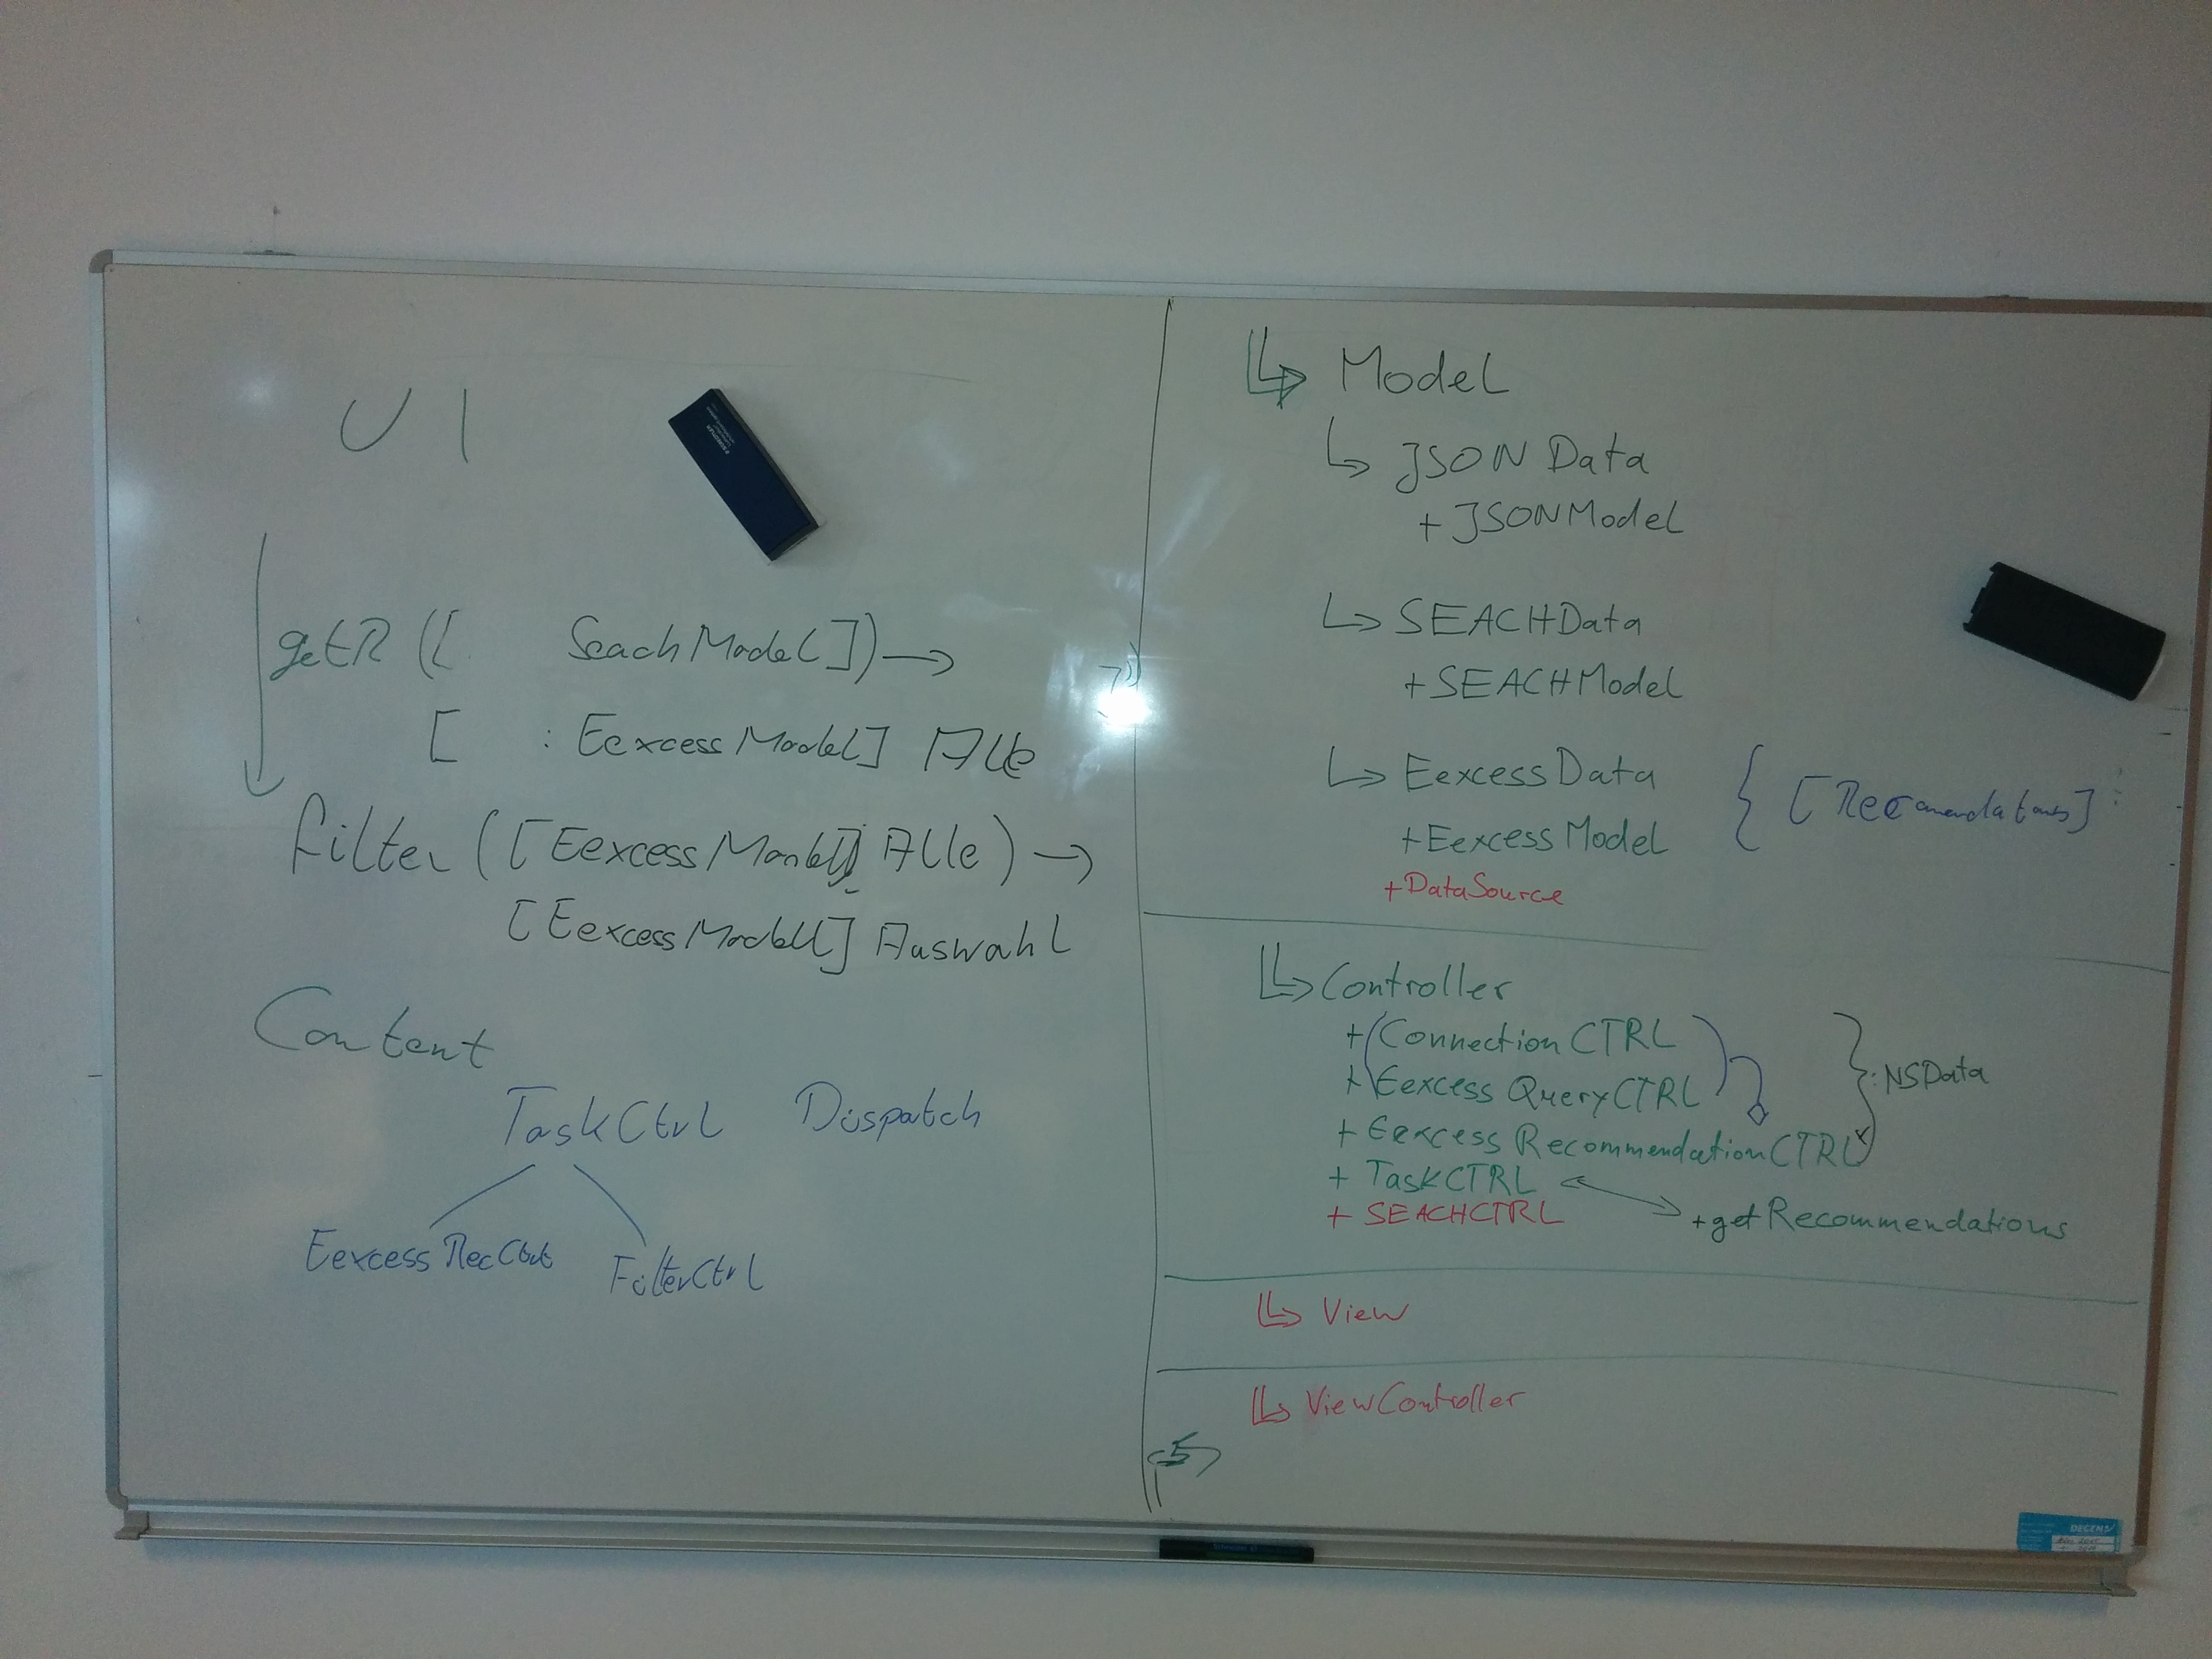 UI
getR ([ SeachModel])→
[ : EexcessModel] Alle
filter ([EexcessModel] Alle) →
[EexcessModell] Auswahl
Content
TaskCtrl Dispatch
EexcessRecCtrl FilterCtrl
Model
JSON Data
+ JSONModel
SEACHData
+SEACHModel
EexcessData
+EexcessModel
{ [Recomendations]
+DataSource
Controller
+(Connection CTRL
+ Eexcess QueryCTRL)
} : NSData
+ Eexcess RecommendationCTRL
+ TaskCTRL
+ SEACHCTRL
+getRecommendations
View
ViewController
5